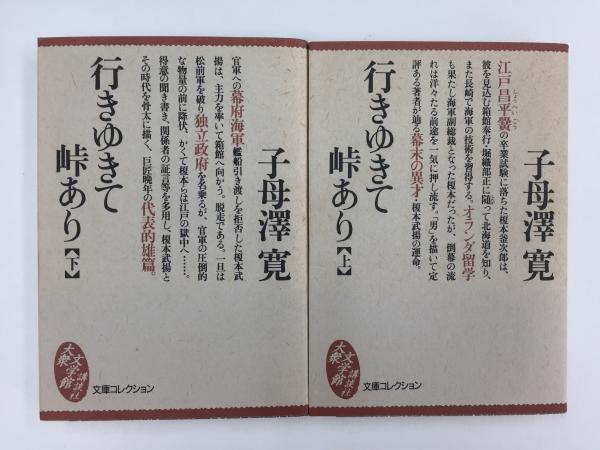 江戸昌平黌の卒業試験に落ちた榎本釜次郎は、
彼を見込む箱館奉行・堀織部正に随って北海道を知り、
また長崎で海軍の技術を習得する。オランダ留学
も果たし海軍副総裁となった榎本だったが、倒幕の流
れは洋々たる前途を一気に押し流す。「男」を描いて定
評ある著者が辿る幕末の異才・榎本武揚の運命。
子母澤 寛
行きゆきて
峠あり【上】
大衆文学館
講談社
文庫コレクション
官軍への幕府海軍艦船引き渡しを拒否した榎本武
揚は、主力を率いて箱館へ向かう。脱走である。一旦は
松前軍を破り独立政府を名乗るが、官軍の圧倒的
な物量の前に降伏、かくて榎本らは江戸の獄中へ……。
得意の聞き書き、関係者の証言等を多用し、榎本武揚と
その時代を骨太に描く、巨匠晩年の代表的雄篇。
子母澤 寛
行きゆきて
峠あり【下】
大衆文学館
講談社
文庫コレクション